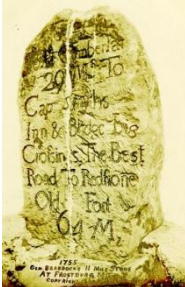 29 Ms To
Capt Smyths
Inn & Bridge Big
Crosings. The Best
Road To Redstone
Old Fort
64-M
1755
Gen Braddocks 11 Mile Stone
At Frostburg
Copyright